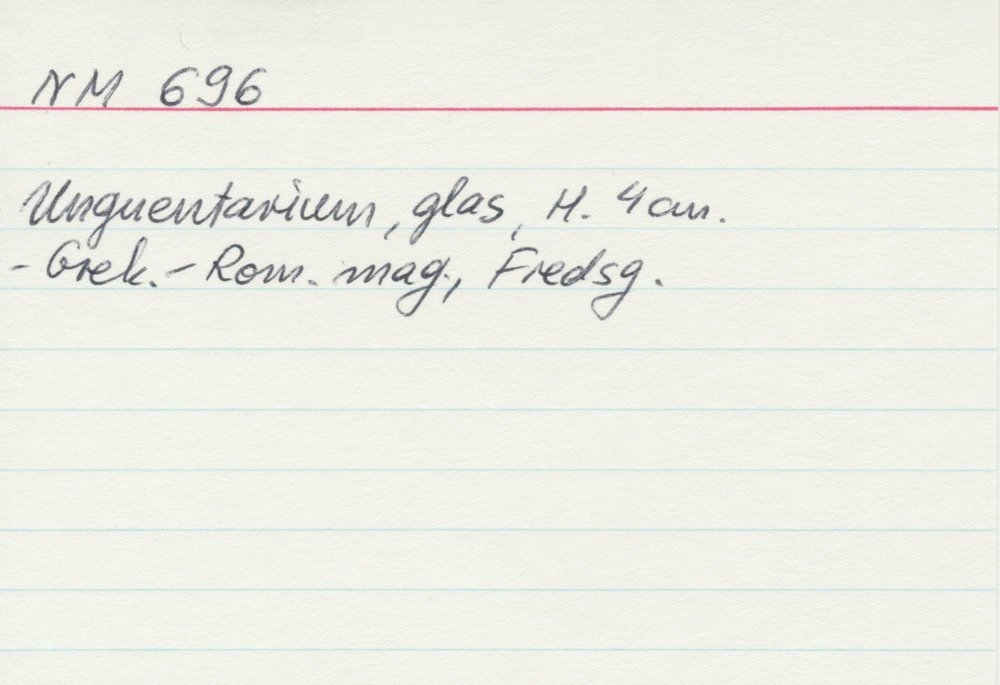 NM 696
Unguentarium, glas, H. 4 cm.
- Grek.- Rom. mag., Fredsg.